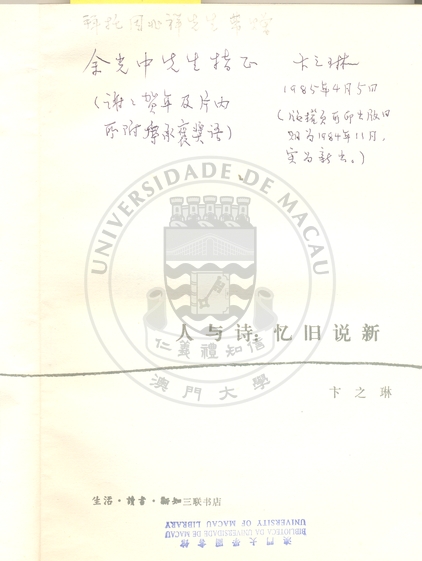 余光中先生指正
(谢谢贺年及片内
所附缪承褒奖语)
卞之琳
1985年4月5日
(版权页所印出版日
期为1984年11月,
实为新出。)
UNIVERSIDADE DE MACAU
仁義禮知信
澳門大學
人与诗:忆旧说新
卞之琳
生活·讀書·新知三联书店
澳門大學圖書館
BIBLIOTECA DA UNIVERSIDADE DE MACAU
UNIVERSITY OF MACAU LIBRARY